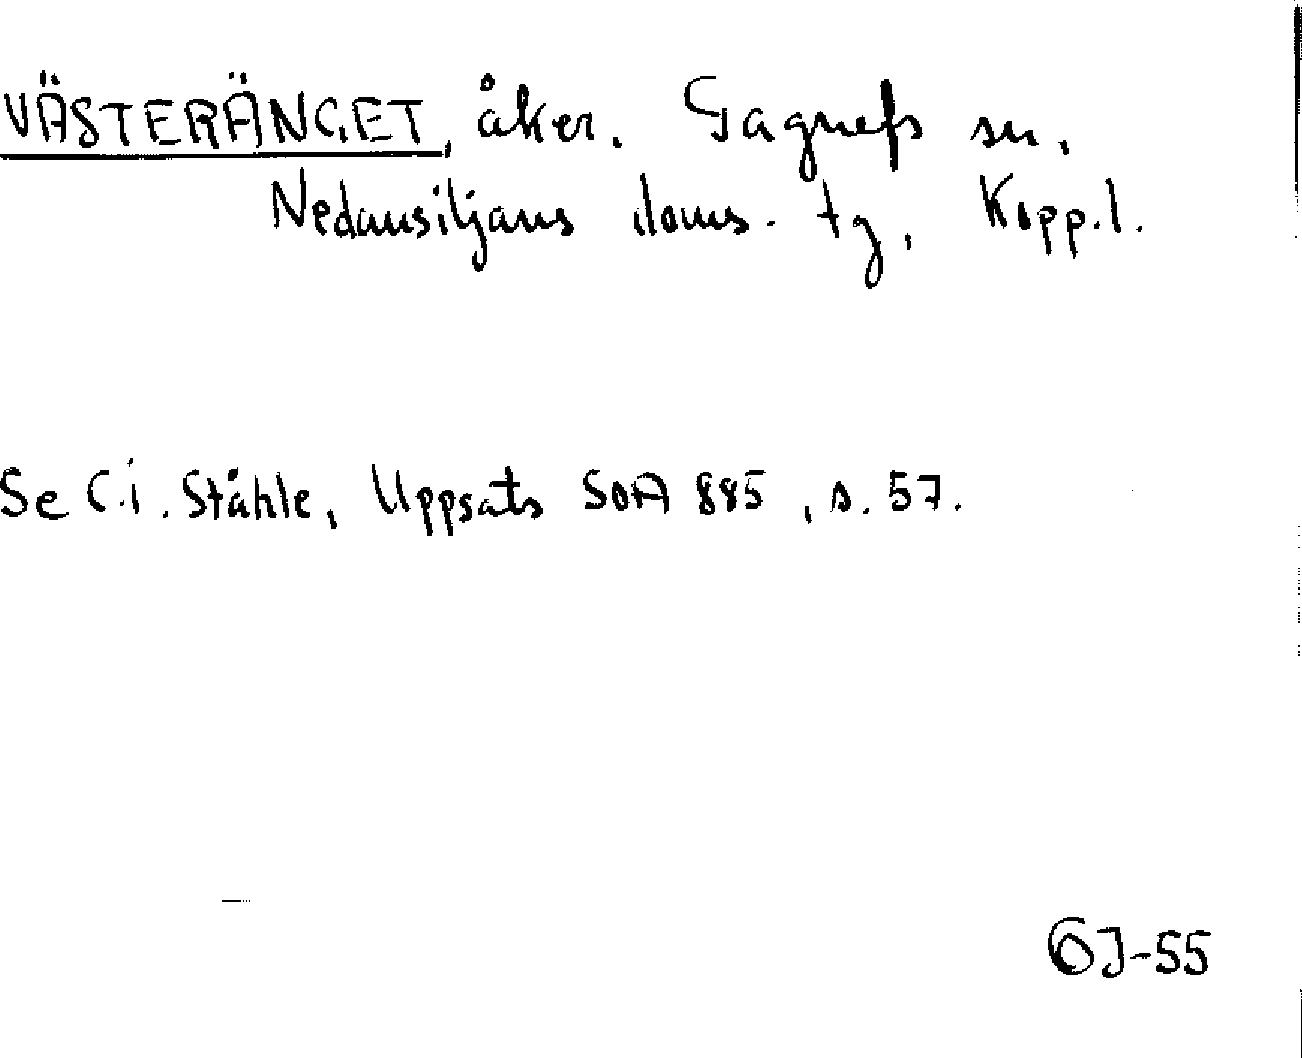 VÄSTERÄNGET, åker. Gagnefs sn.
Nedansiljans doms. tg, Kopp.l.
Se C.i. Ståhle, Uppsats SOA 885, s. 57.
GJ-55